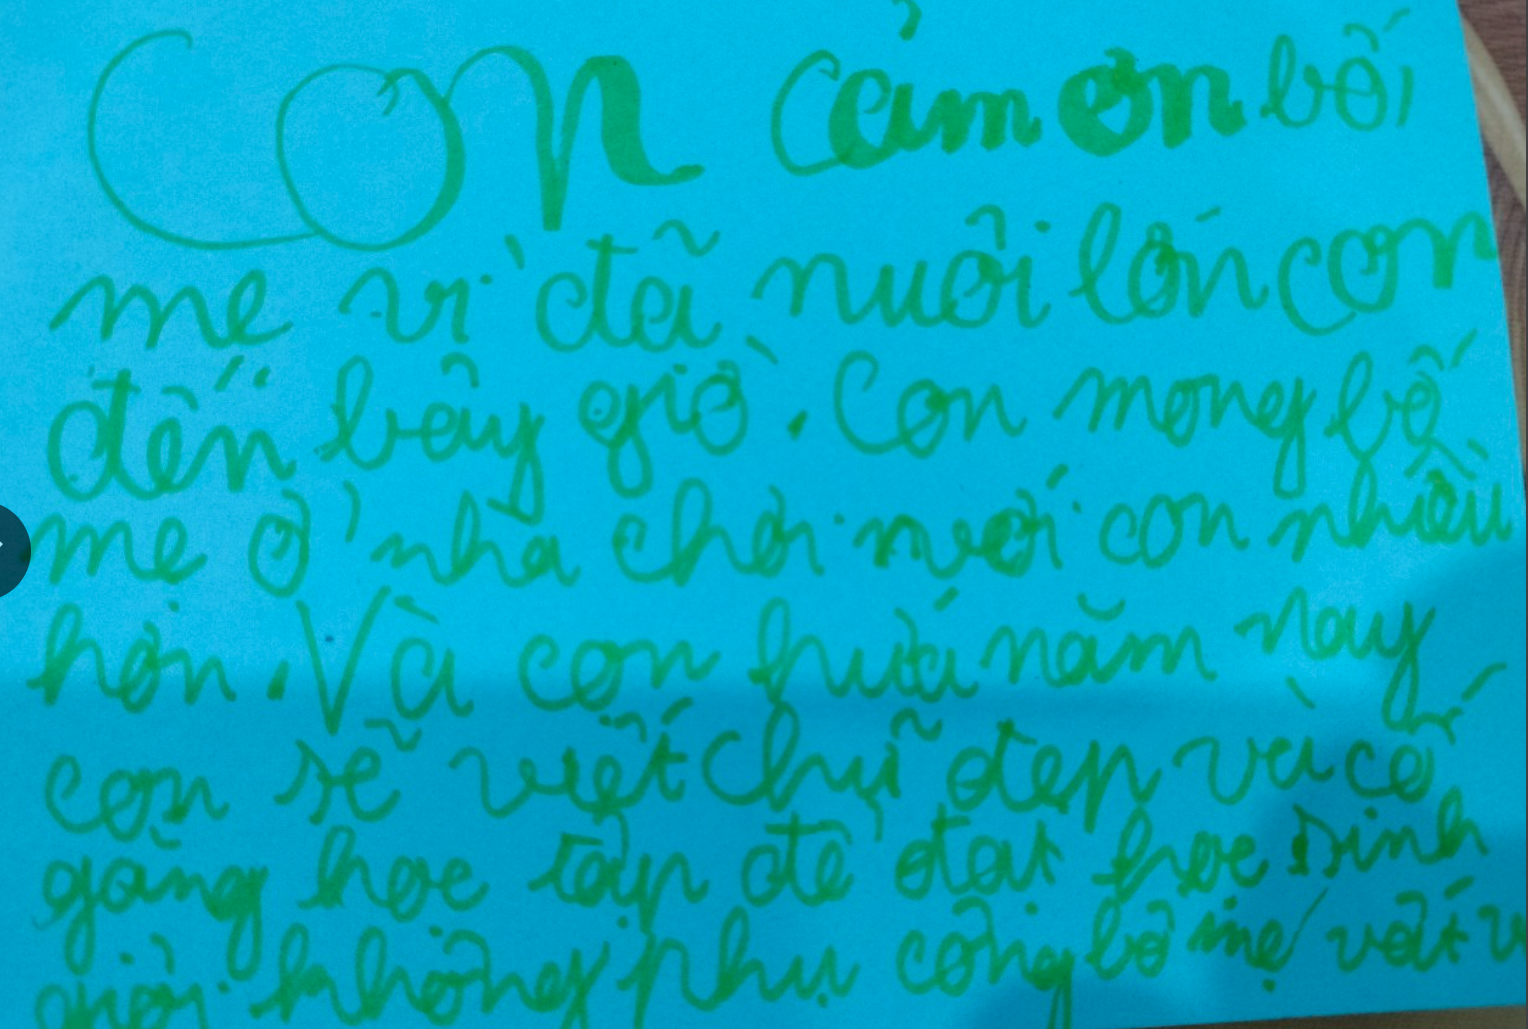 Con cảm ơn bối
mẹ vì đã nuôi lớn con
đến bây giờ. Con mong bố
mẹ ở nhà chơi với con nhiều
hơn. Và con hứa năm nay
con sẽ viết chữ đẹp và cố
gắng học tập để đạt học sinh
giỏi không phụ công bố mẹ vất v